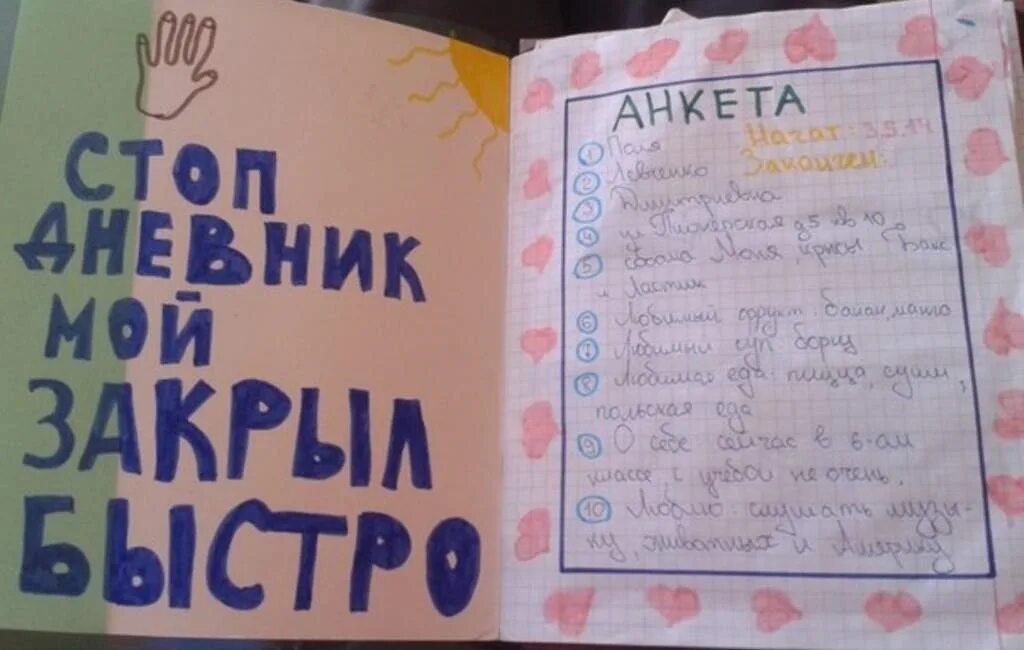 СТОП
ДНЕВНИК
МОЙ
ЗАКРЫЛ
БЫСТРО
АНКЕТА
Начат: 3.5.14
Закончен:
1 Поля
2 Левченко
3 Дмитриевна
4 ул Пионерская д5 кв 10
5 собака Моня, крысы Бакс
и Ластик
6 Любимый фрукт: банан, манго
7 Любимый суп борщ
8 Любимая еда: пицца, суши,
польская еда
9 О себе сейчас в 6-ом
классе, с учёбой не очень.
10 Люблю: слушать музы-
ку, животных и Америку